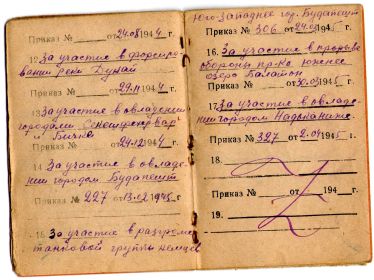 Приказ № от 24.08 1944 г.
12. За участие в форсиро-
вании реки Дунай
Приказ № от 29.11 1944 г.
13 За участие в овладении
городами Секешфехервар
и Бичке
Приказ № от 24.12 1944 г.
14 За участие в овладе-
нии городом Будапешт
Приказ № 227 от 13.02 1945 г.
15 За участие в разгроме
танковой группы немцев
Юго-западнее гор. Будапешт
Приказ № 306 от 24.03 1945 г.
16. За участие в прорыве
обороны пр-ка южнее
озеро Балатон
Приказ № от 30.03 1945 г.
17 За участие в овладе-
нии городом Надьканиже.
Приказ № 327 2.04 1945 г.
18.
Приказ № от 194 г.
19.